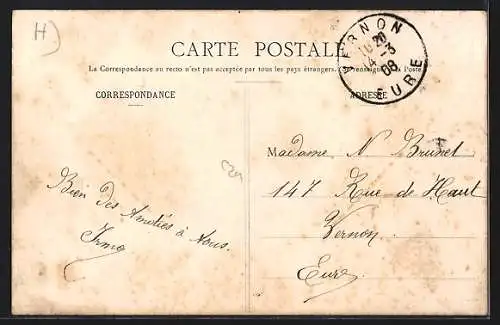 H)
CARTE POSTALE
La Correspondance au recto n'est pas acceptée par tous les pays étrangers. (Se renseigner à la Poste)
CORRESPONDANCE
ADRESSE
VERNON
EURE
14-3
08
Madame N Brunet
147 Rue de Haut
Vernon
Eure
Bien des Amitiés à Vous.
Irma